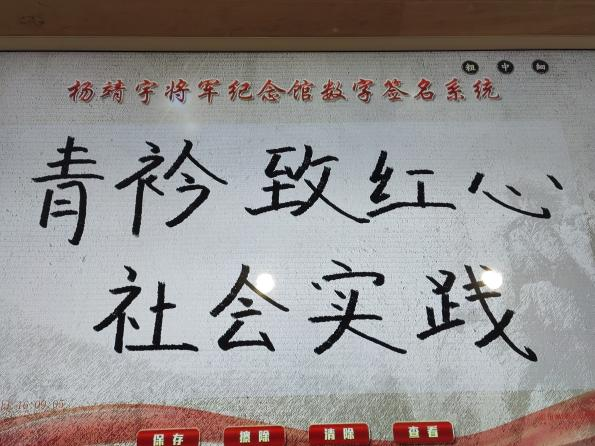 粗 中 细
杨靖宇将军纪念馆数字签名系统
青衿致红心
社会实践
日 16:09:05
保存 擦除 清除 查看